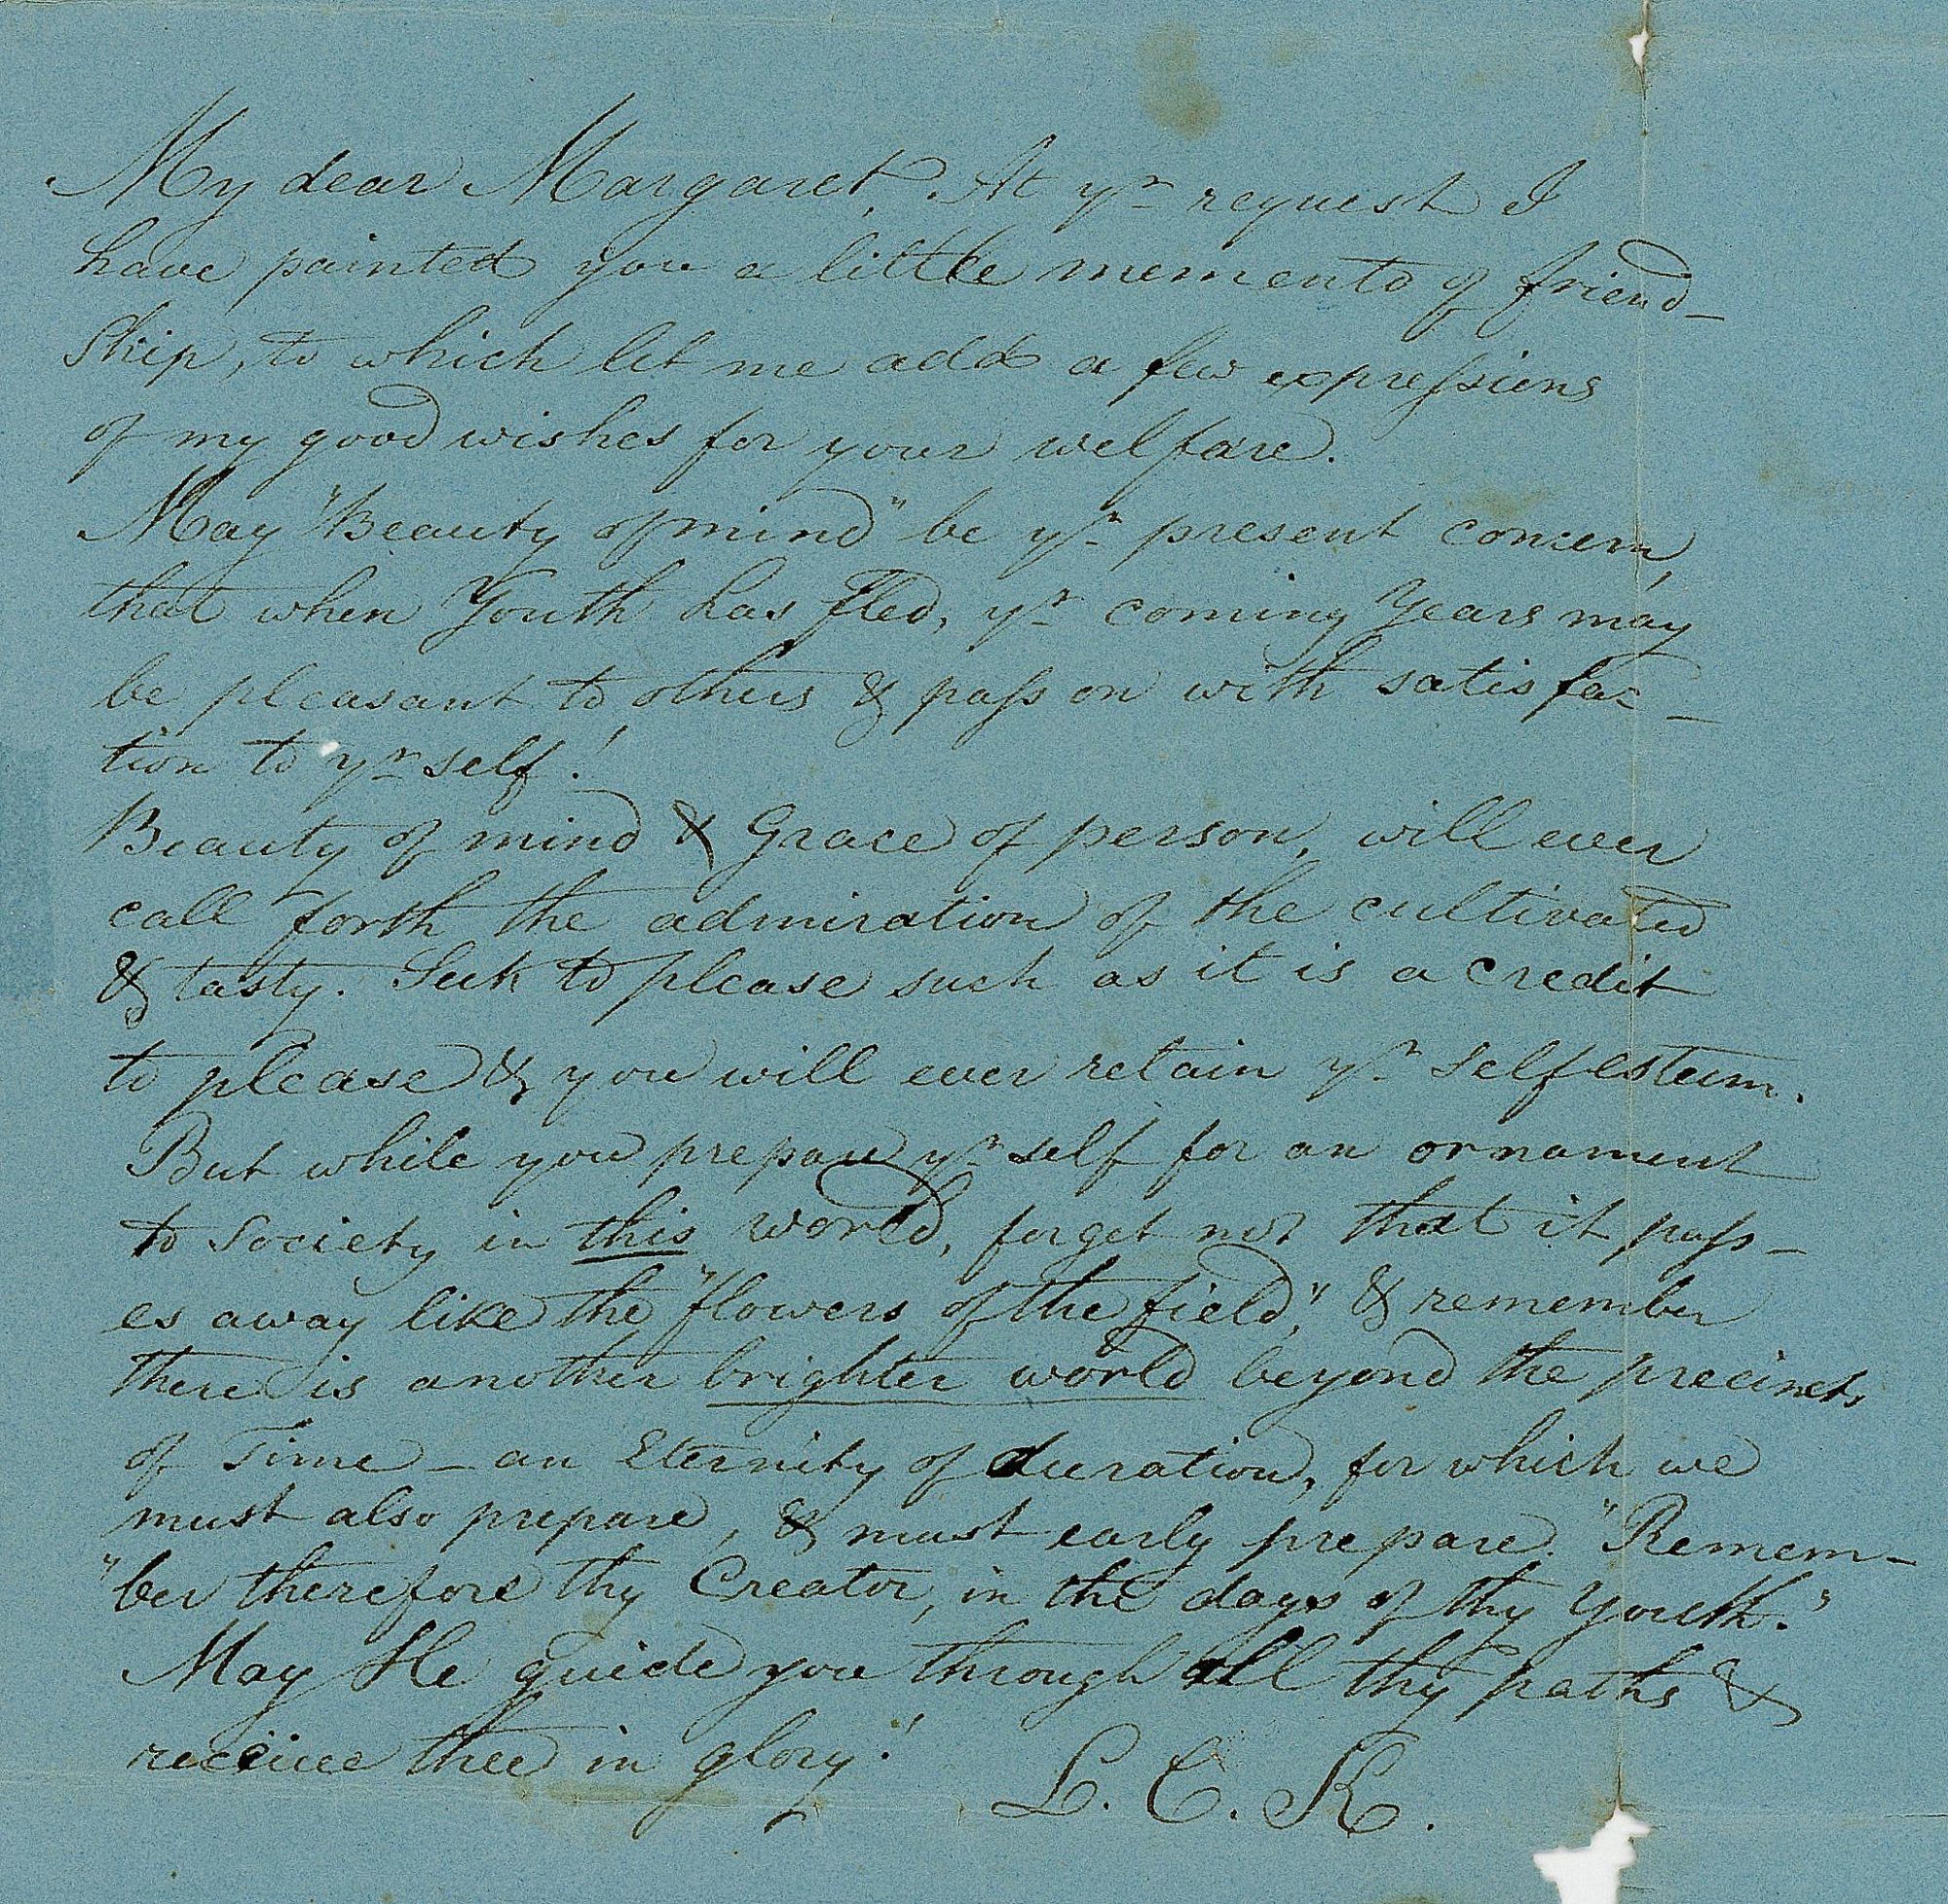 My dear Margaret, At yr request I
have painted you a little memento of friend-
ship, to which let me add a few expreſsions
of my good wishes for your welfare.
May "Beauty of mind" be yr present concern,
that when Youth has fled, yr coming Years may
be pleasant to others & paſs on with satisfac-
tion to yrself!
Beauty of mind & Grace of person, will ever
call forth the admiration of the cultivated
& tasty. Seek to please such as it is a credit
to please & you will ever retain yr self esteem.
But while you prepare yrself for an ornament
to Society in this world, forget not that it paſs-
es away like the "flowers of the field," & remember
there is another brighter world beyond the precincts
of Time - an Eternity of duration, for which we
must also prepare, & must early prepare. "Remem-
"ber therefore thy Creator, in the days of thy Youth."
May He guide you through all thy paths &
receive thee in glory!
L. C. K.